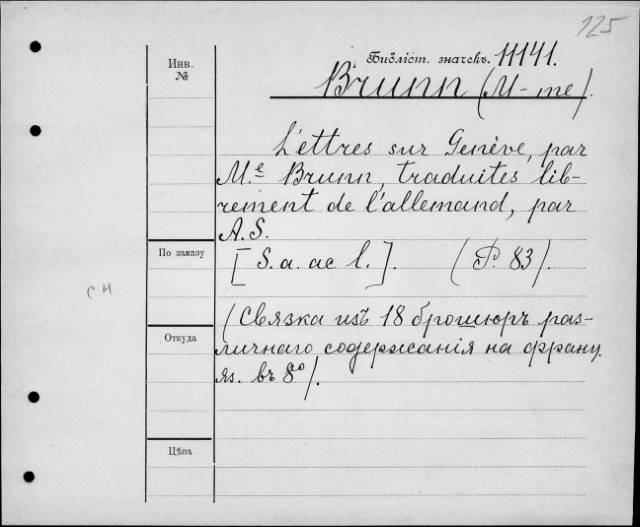 125
Инв.
№
Библіот. значекъ. 11141.
Brunn (M-me).
Lettres sur Genève, par
M.e Brunn, traduites lib-
rement de l'allemand, par
A.S.
По заказу
[S. a. ac l.]. (P. 83).
сн
(Связка изъ 18 брошюръ раз-
Откуда
личнаго содержанія на франц.
яз. въ 8º).
Цѣна